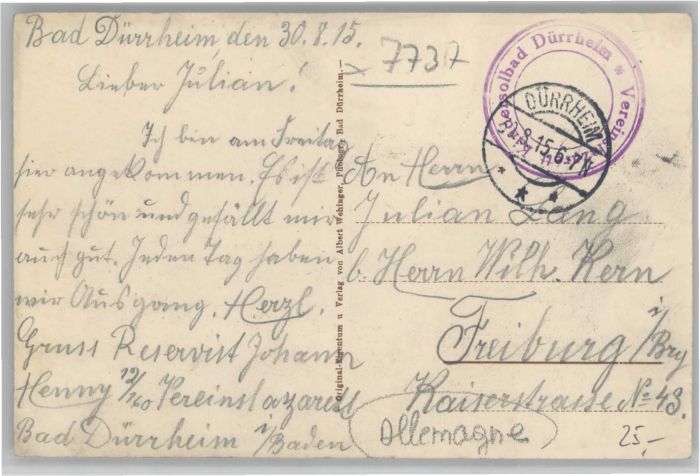 Bad Dürrheim, den 30.8.15.
Lieber Julian!
Ich bin am Freitag
hier angekommen. Es ist
sehr schön und gefällt mir
auch gut. Jeden Tag haben
wir Ausgang. Herzl.
Gruss Reservist Johann
Henny 12/160 Vereinslazarett
Bad Dürrheim i/Baden
Original-Eigentum u Verlag von Albert Wehinger, Photogr. Bad Dürrheim.
7737
Solbad Dürrheim * Verein
DÜRRHEIM
8.15.6-7N
An Herrn
Julian Lang
b. Herrn Wilh. Kern
Freiburg i/Brg
Kaiserstrasse No 43.
Allemagne
25,-